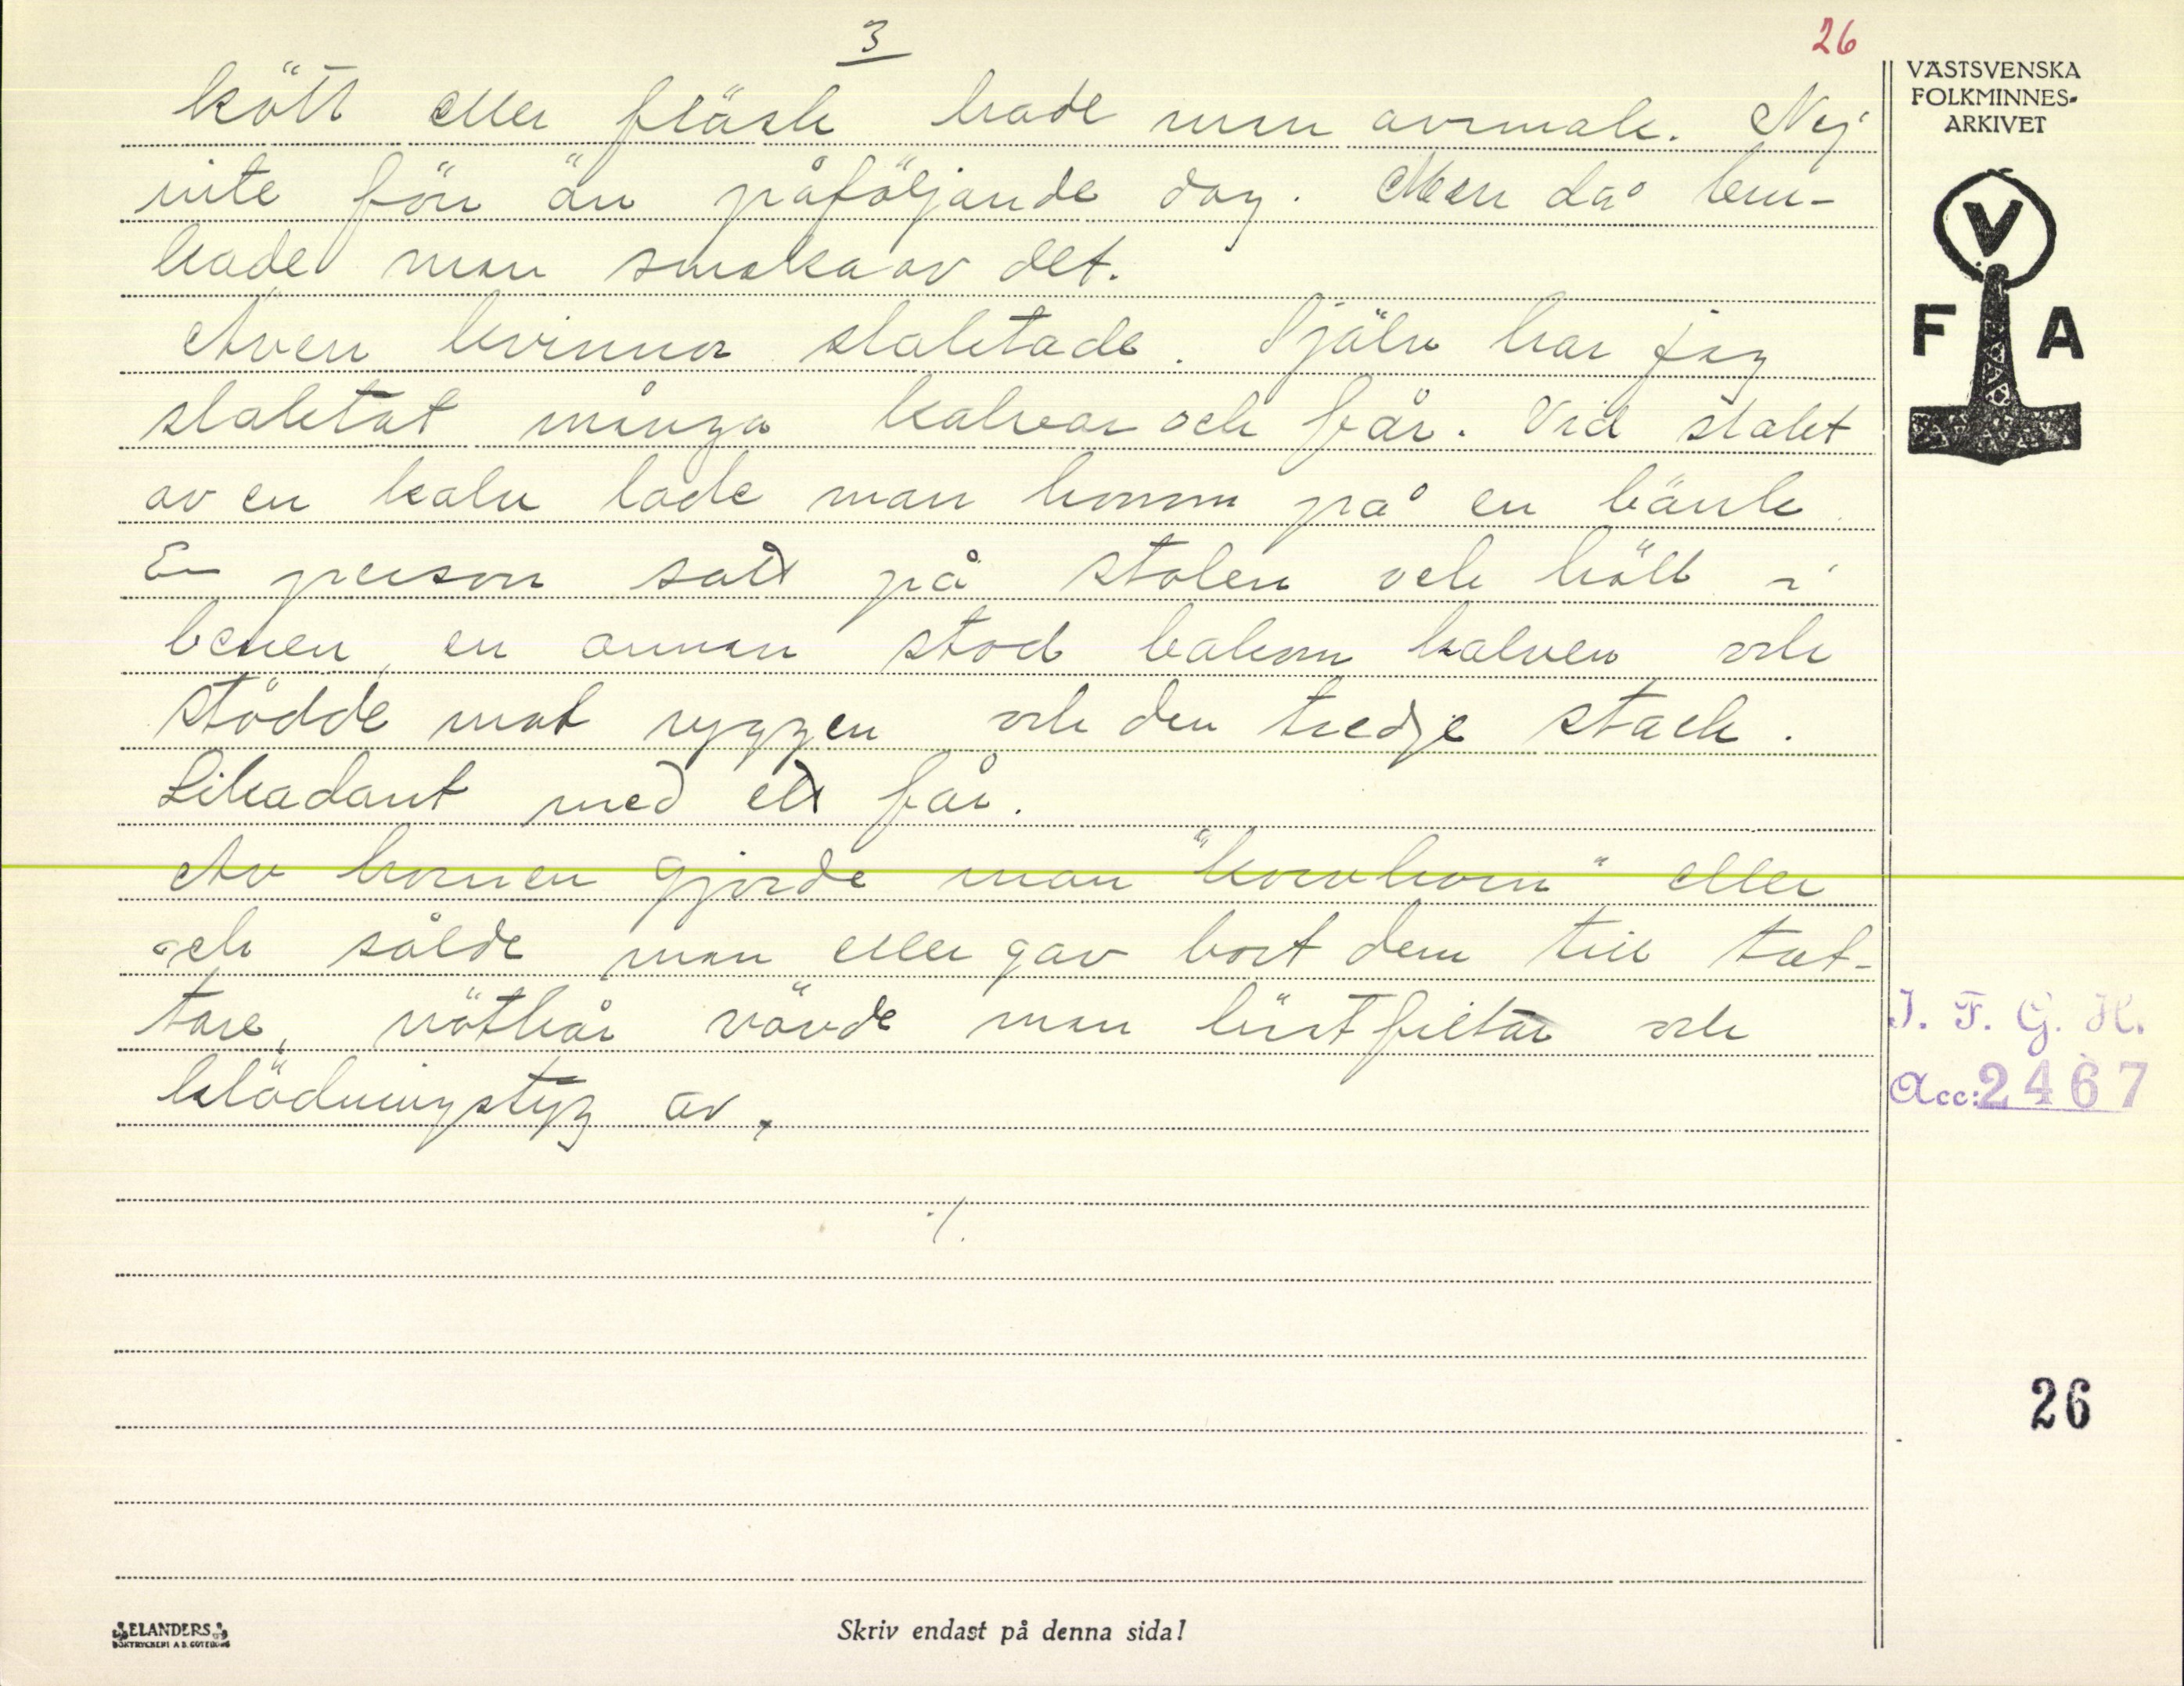 3
26
kött eller fläsk hade man avsmak. Nej
inte förr än påföljande dag. Men då bru-
kade man smaka av det.
Även kvinnor slaktade. Själv har jag
slaktat många kalvar och får. Vid slakt
av en kalv lade man honom på en bänk.
En person satt på stolen och höll i
benen, en annan stod bakom kalven och
stödde mot ryggen och den tredje stack.
Likadant med ett får.
Av hornen gjorde man "korvhorn" eller
och sålde man eller gav bort dem till tat-
tare, nöthår vävde man hästfiltar och
klädningstyg av.
./.
VÄSTSVENSKA
FOLKMINNES-
ARKIVET
V
F A
I. F. G. H.
Acc: 2467
26
ELANDERS
BOKTRYCKERI A B. GÖTEBORG
Skriv endast på denna sida!